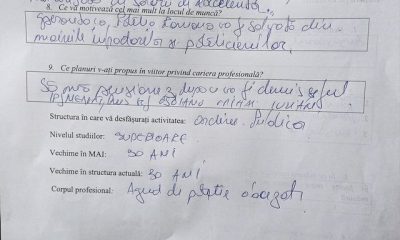 8. Ce vă motivează cel mai mult la locul de muncă?
Speranța că, Patria Română va fi salvată din
mâinile impostorilor și politicienilor.
9. Ce planuri v-ați propus în viitor privind cariera profesională?
Să mă pensionez după ce va fi demis șeful
Structura în care vă desfășurați activitatea: Ordine Publică
Nivelul studiilor: SUPERIOARE
Vechime în MAI: 30 ANI
Vechime în structura actuală: 30 ANI
Corpul profesional: Agent de poliție